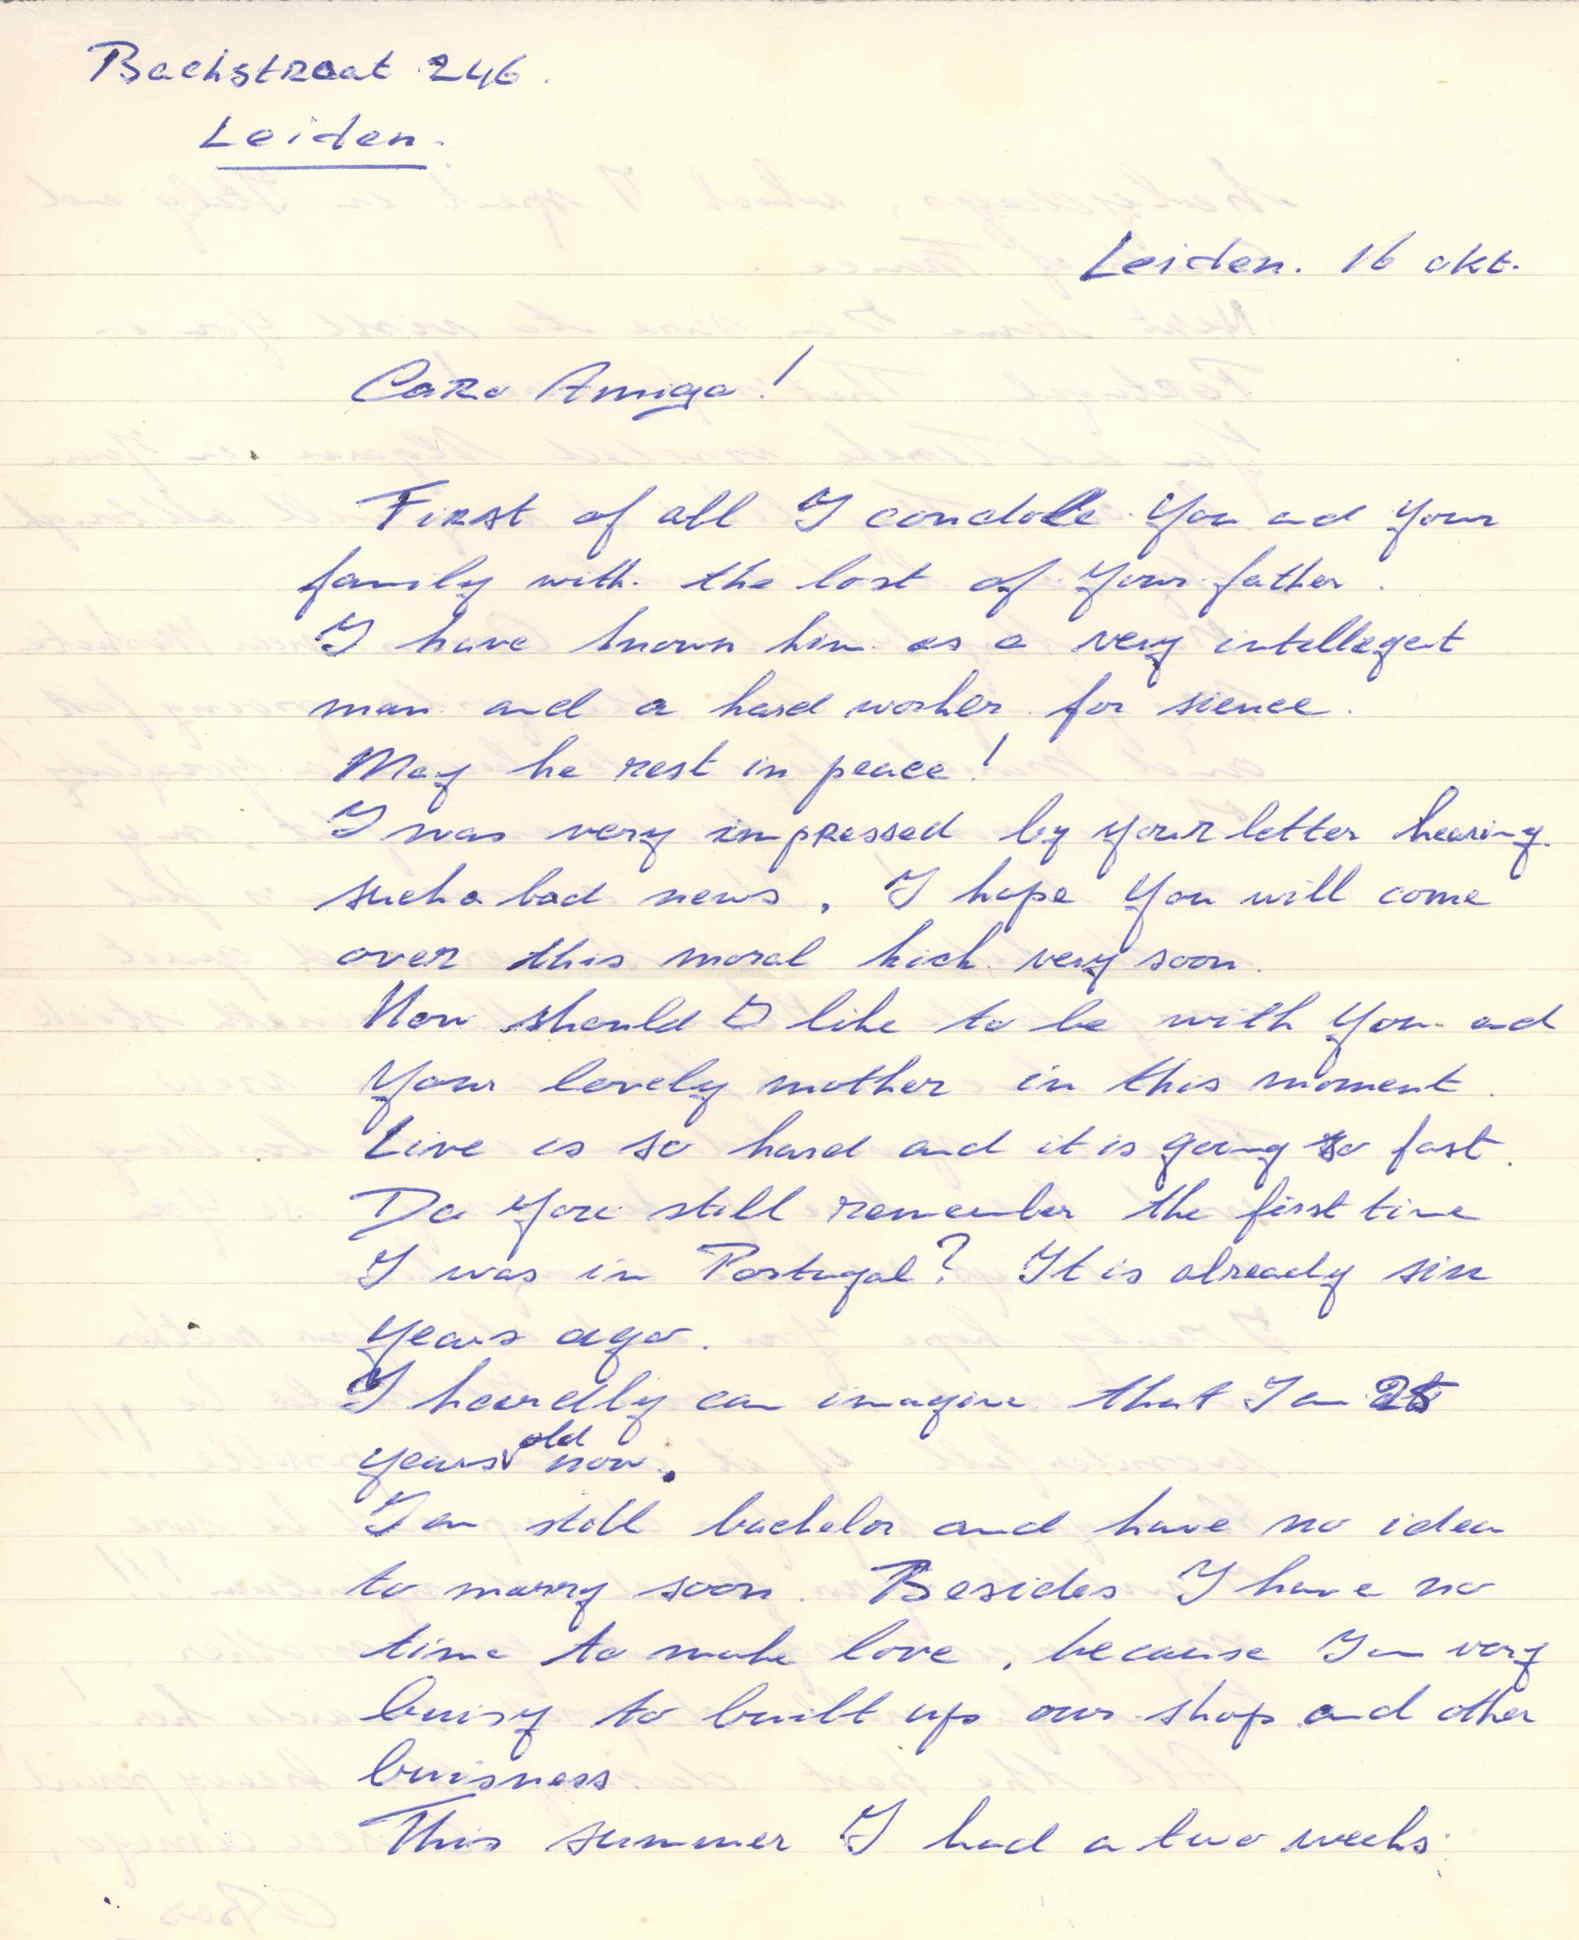 Bachstraat 246.
Leiden.
Leiden. 16 okt.
Caro Amigo!
First of all I condole you and your
family with the lost of your father.
I have known him as a very intellegent
man and a hard worker for sience.
May he rest in peace!
I was very impressed by your letter hearing
such a bad news. I hope you will come
over this moral kick very soon.
How should I like to be with you and
your lovely mother in this moment.
Live is so hard and it is going so fast.
Do you still remember the first time
I was in Portugal? It is already six
years ago.
I heardly can imagine that I am 25
years old now.
I am still bachelor and have no idea
to marry soon. Besides I have no
time to make love, because I am very
buisy to built up our shop and other
buisness.
This summer I had a two weeks